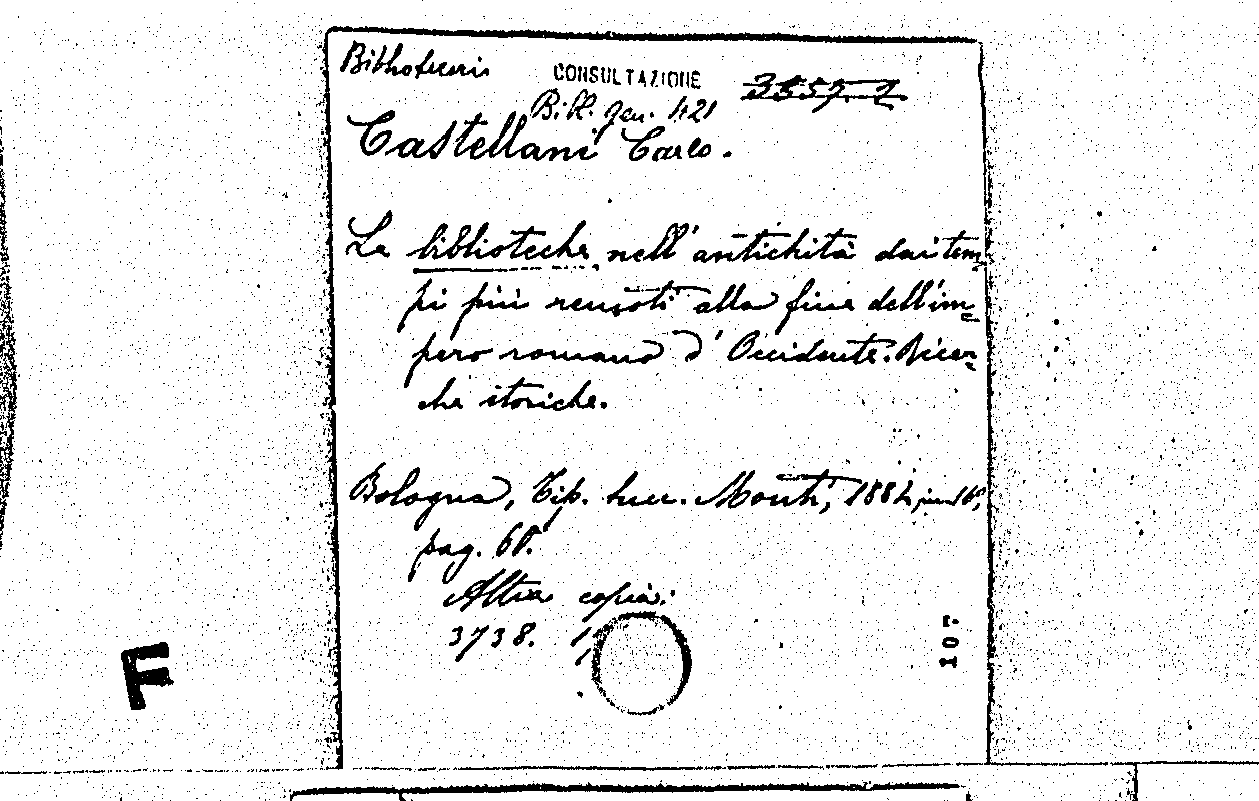 Biblioteconomia
CONSULTAZIONE
3559.2
Bibl. gen. 421
Castellani Carlo.
Le biblioteche nell'antichità dai tem-
pi più remoti alla fine dell'im-
pero romano d'Occidente. Ricer-
che storiche.
Bologna, Tip. succ. Monti, 1884, in 16°,
pag. 60.
Altra copia:
3738. 1
107
F